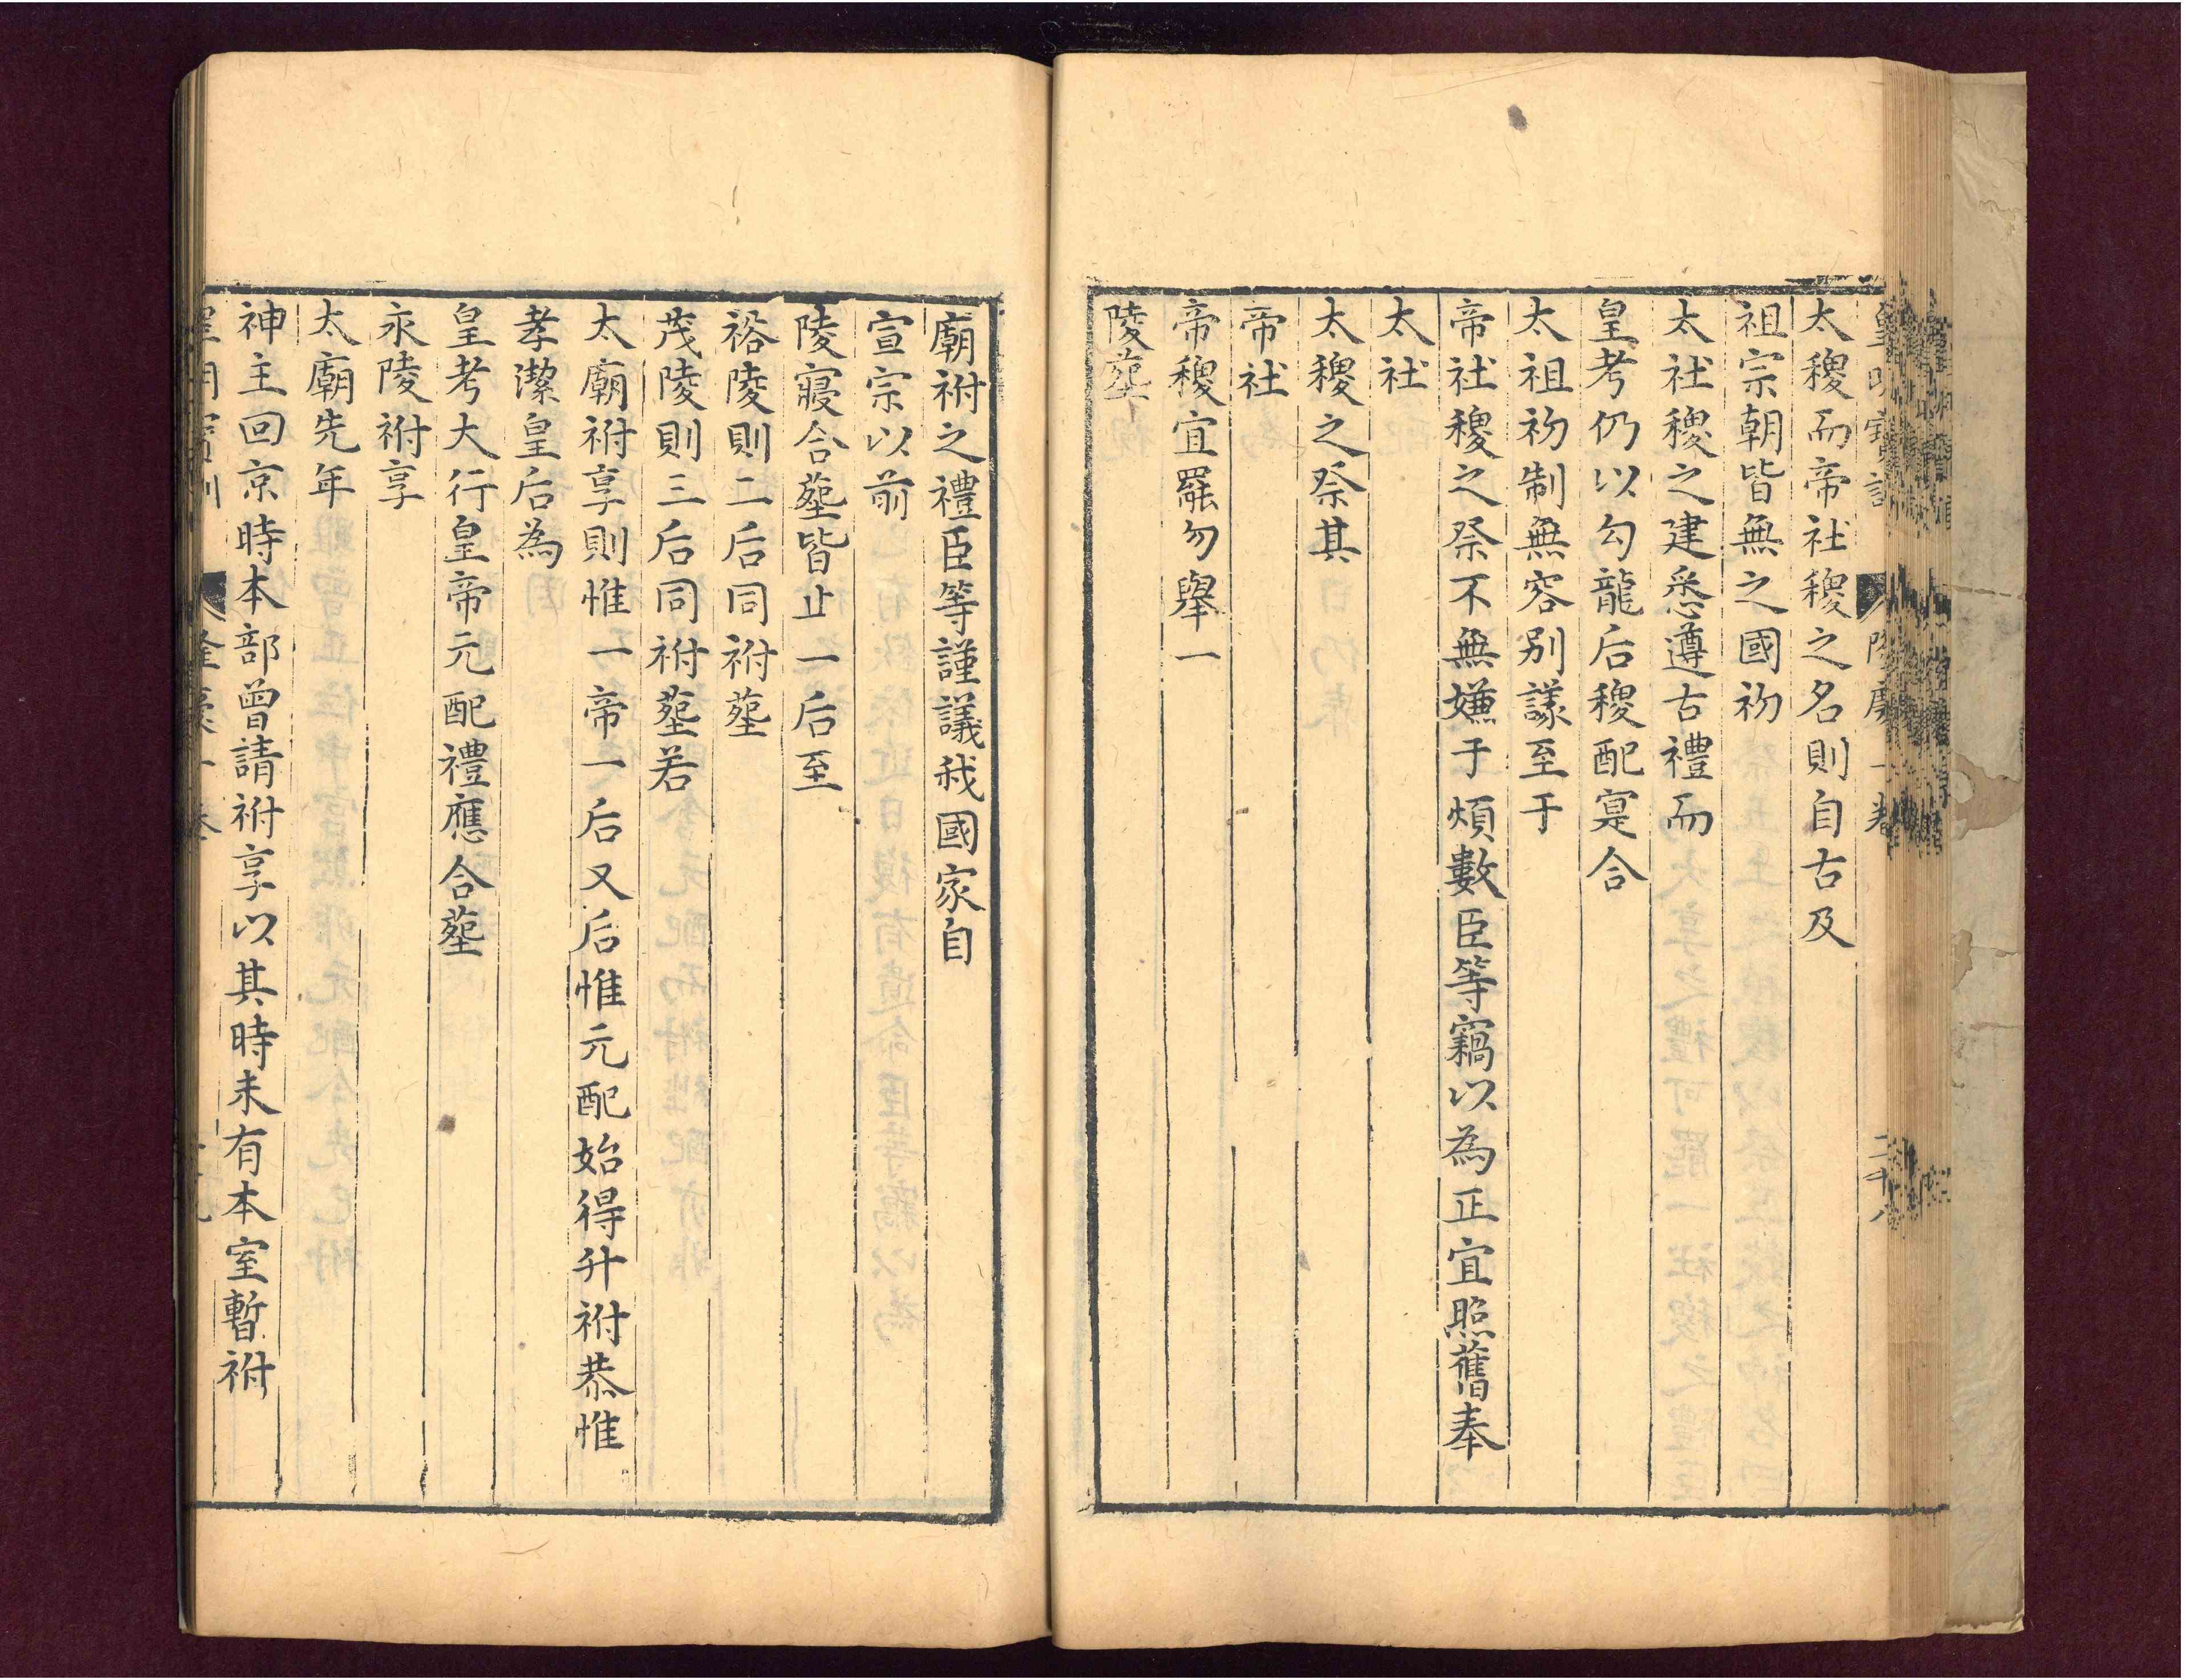 皇明寶訓 隆慶一卷 二十八
太稷而帝社稷之名則自古及
祖宗朝皆無之國初
太社稷之建悉遵古禮而
皇考仍以勾龍后稷配寔合
太祖初制無容别議至于
帝社稷之祭不無嫌于煩數臣等竊以為正宜照舊奉
太社
太稷之祭其
帝社
帝稷宜罷勿舉一
陵塟
廟祔之禮臣等謹議我國家自
宣宗以前
陵寢合塟皆止一后至
裕陵則二后同祔塟
茂陵則三后同祔塟若
太廟祔享則惟一帝一后又后惟元配始得升祔恭惟
孝潔皇后為
皇考大行皇帝元配禮應合塟
永陵祔享
太廟先年
神主回京時本部曾請祔享以其時未有本室暫祔